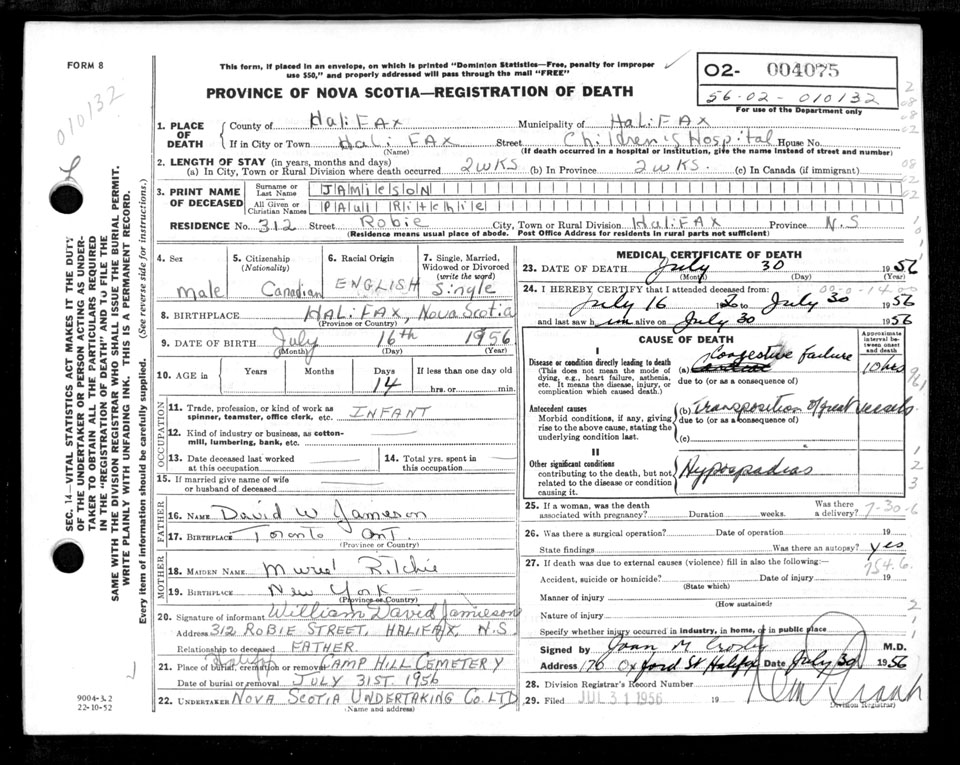 FORM 8
This form, if placed in an envelope, on which is printed "Dominion Statistics—Free, penalty for improper
use $50," and properly addressed will pass through the mail "FREE"
PROVINCE OF NOVA SCOTIA—REGISTRATION OF DEATH
02- 004075
56-02-010132
For use of the Department only
010132
SEC. 14—VITAL STATISTICS ACT MAKES IT THE DUTY
OF THE UNDERTAKER OR PERSON ACTING AS UNDER-
TAKER TO OBTAIN ALL THE PARTICULARS REQUIRED
IN THE "REGISTRATION OF DEATH" AND TO FILE THE
SAME WITH THE DIVISION REGISTRAR WHO SHALL ISSUE THE BURIAL PERMIT.
WRITE PLAINLY WITH UNFADING INK. THIS IS A PERMANENT RECORD.
Every item of information should be carefully supplied. (See reverse side for instructions.)
1. PLACE OF DEATH County of HaliFAx Municipality of HaLiFAX
If in City or Town HaLi FAX (Name) Street Children's Hospital House No.
(If death occurred in a hospital or institution, give the name instead of street and number)
2. LENGTH OF STAY (in years, months and days)
(a) In City, Town or Rural Division where death occurred 2 wks (b) In Province 2 wks. (c) In Canada (if immigrant)
3. PRINT NAME OF DECEASED Surname or Last Name JAMiESON
All Given or Christian Names PAUl Ritchie
RESIDENCE No. 312 Street Robie City, Town or Rural Division HaliFAX Province N.S
(Residence means usual place of abode. Post Office Address for residents in rural parts not sufficient)
4. Sex Male
5. Citizenship (Nationality) Canadian
6. Racial Origin ENGLISH
7. Single, Married, Widowed or Divorced (write the word) Single
8. BIRTHPLACE HALiFAX, Nova Scotia
(Province or Country)
9. DATE OF BIRTH July 16th 1956
(Month) (Day) (Year)
10. AGE in Years Months Days 14 If less than one day old hrs. or min.
OCCUPATION
11. Trade, profession, or kind of work as spinner, teamster, office clerk, etc. INFANT
12. Kind of industry or business, as cotton-mill, lumbering, bank, etc.
13. Date deceased last worked at this occupation
14. Total yrs. spent in this occupation
15. If married give name of wife or husband of deceased
FATHER
16. NAME David W Jamieson
17. BIRTHPLACE Toronto ONT.
(Province or Country)
MOTHER
18. MAIDEN NAME Muriel Ritchie
19. BIRTHPLACE New York
(Province or Country)
20. Signature of informant William David Jamieson
Address 312 ROBIE STREET, HALIFAX, N.S.
Relationship to deceased FATHER
21. Place of burial, cremation or removal Halifax CAMP HILL CEMETERY
Date of burial or removal JULY 31ST. 1956
22. UNDERTAKER NOVA SCOTIA UNDERTAKING CO. LTD
(Name and address)
9004-3.2
22-10-52
MEDICAL CERTIFICATE OF DEATH
23. DATE OF DEATH July 30 1956
(Month) (Day) (Year)
24. I HEREBY CERTIFY that I attended deceased from:
July 16 to July 30 1956
and last saw him alive on July 30 1956
CAUSE OF DEATH
Approximate interval between onset and death
I
Disease or condition directly leading to death
(This does not mean the mode of dying, e.g., heart failure, asthenia, etc. It means the disease, injury, or complication which caused death.)
(a) Congestive failure 10 hrs
due to (or as a consequence of)
Antecedent causes
Morbid conditions, if any, giving rise to the above cause, stating the underlying condition last.
(b) transposition of great vessels
due to (or as a consequence of)
(c)
II
Other significant conditions
contributing to the death, but not related to the disease or condition causing it.
Hypospadias
25. If a woman, was the death associated with pregnancy? Duration weeks. Was there a delivery? 7-30-6
26. Was there a surgical operation? Date of operation 19
State findings Was there an autopsy? yes
27. If death was due to external causes (violence) fill in also the following:— 754.6
Accident, suicide or homicide? Date of injury 19
(State which)
Manner of injury
(How sustained)
Nature of injury
Specify whether injury occurred in industry, in home, or in public place
Signed by Joan M. Crosby M.D.
Address 176 Oxford St Halifax Date July 30 1956
28. Division Registrar's Record Number
29. Filed JUL 31 1956 19
Division Registrar